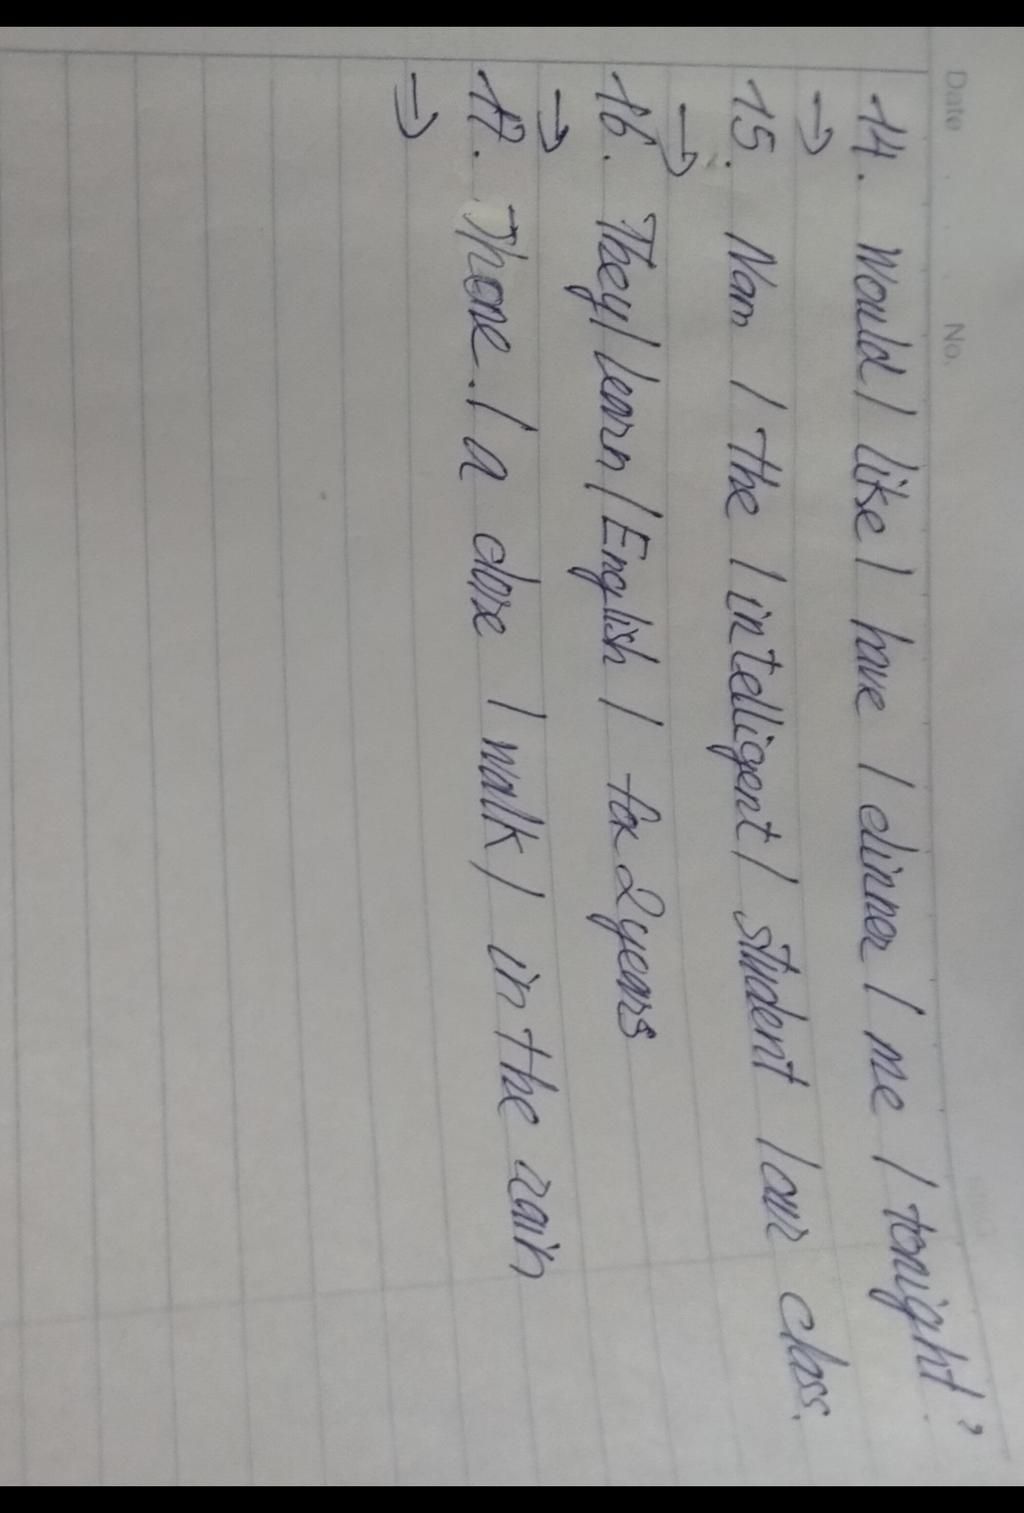 Date No.
14. Would / like / have / dinner / me / tonight?
→
15. Nam / the / intelligent / student / our class.
→
16. They / learn / English / for 2 years
→
17. / a / walk / in the rain
→